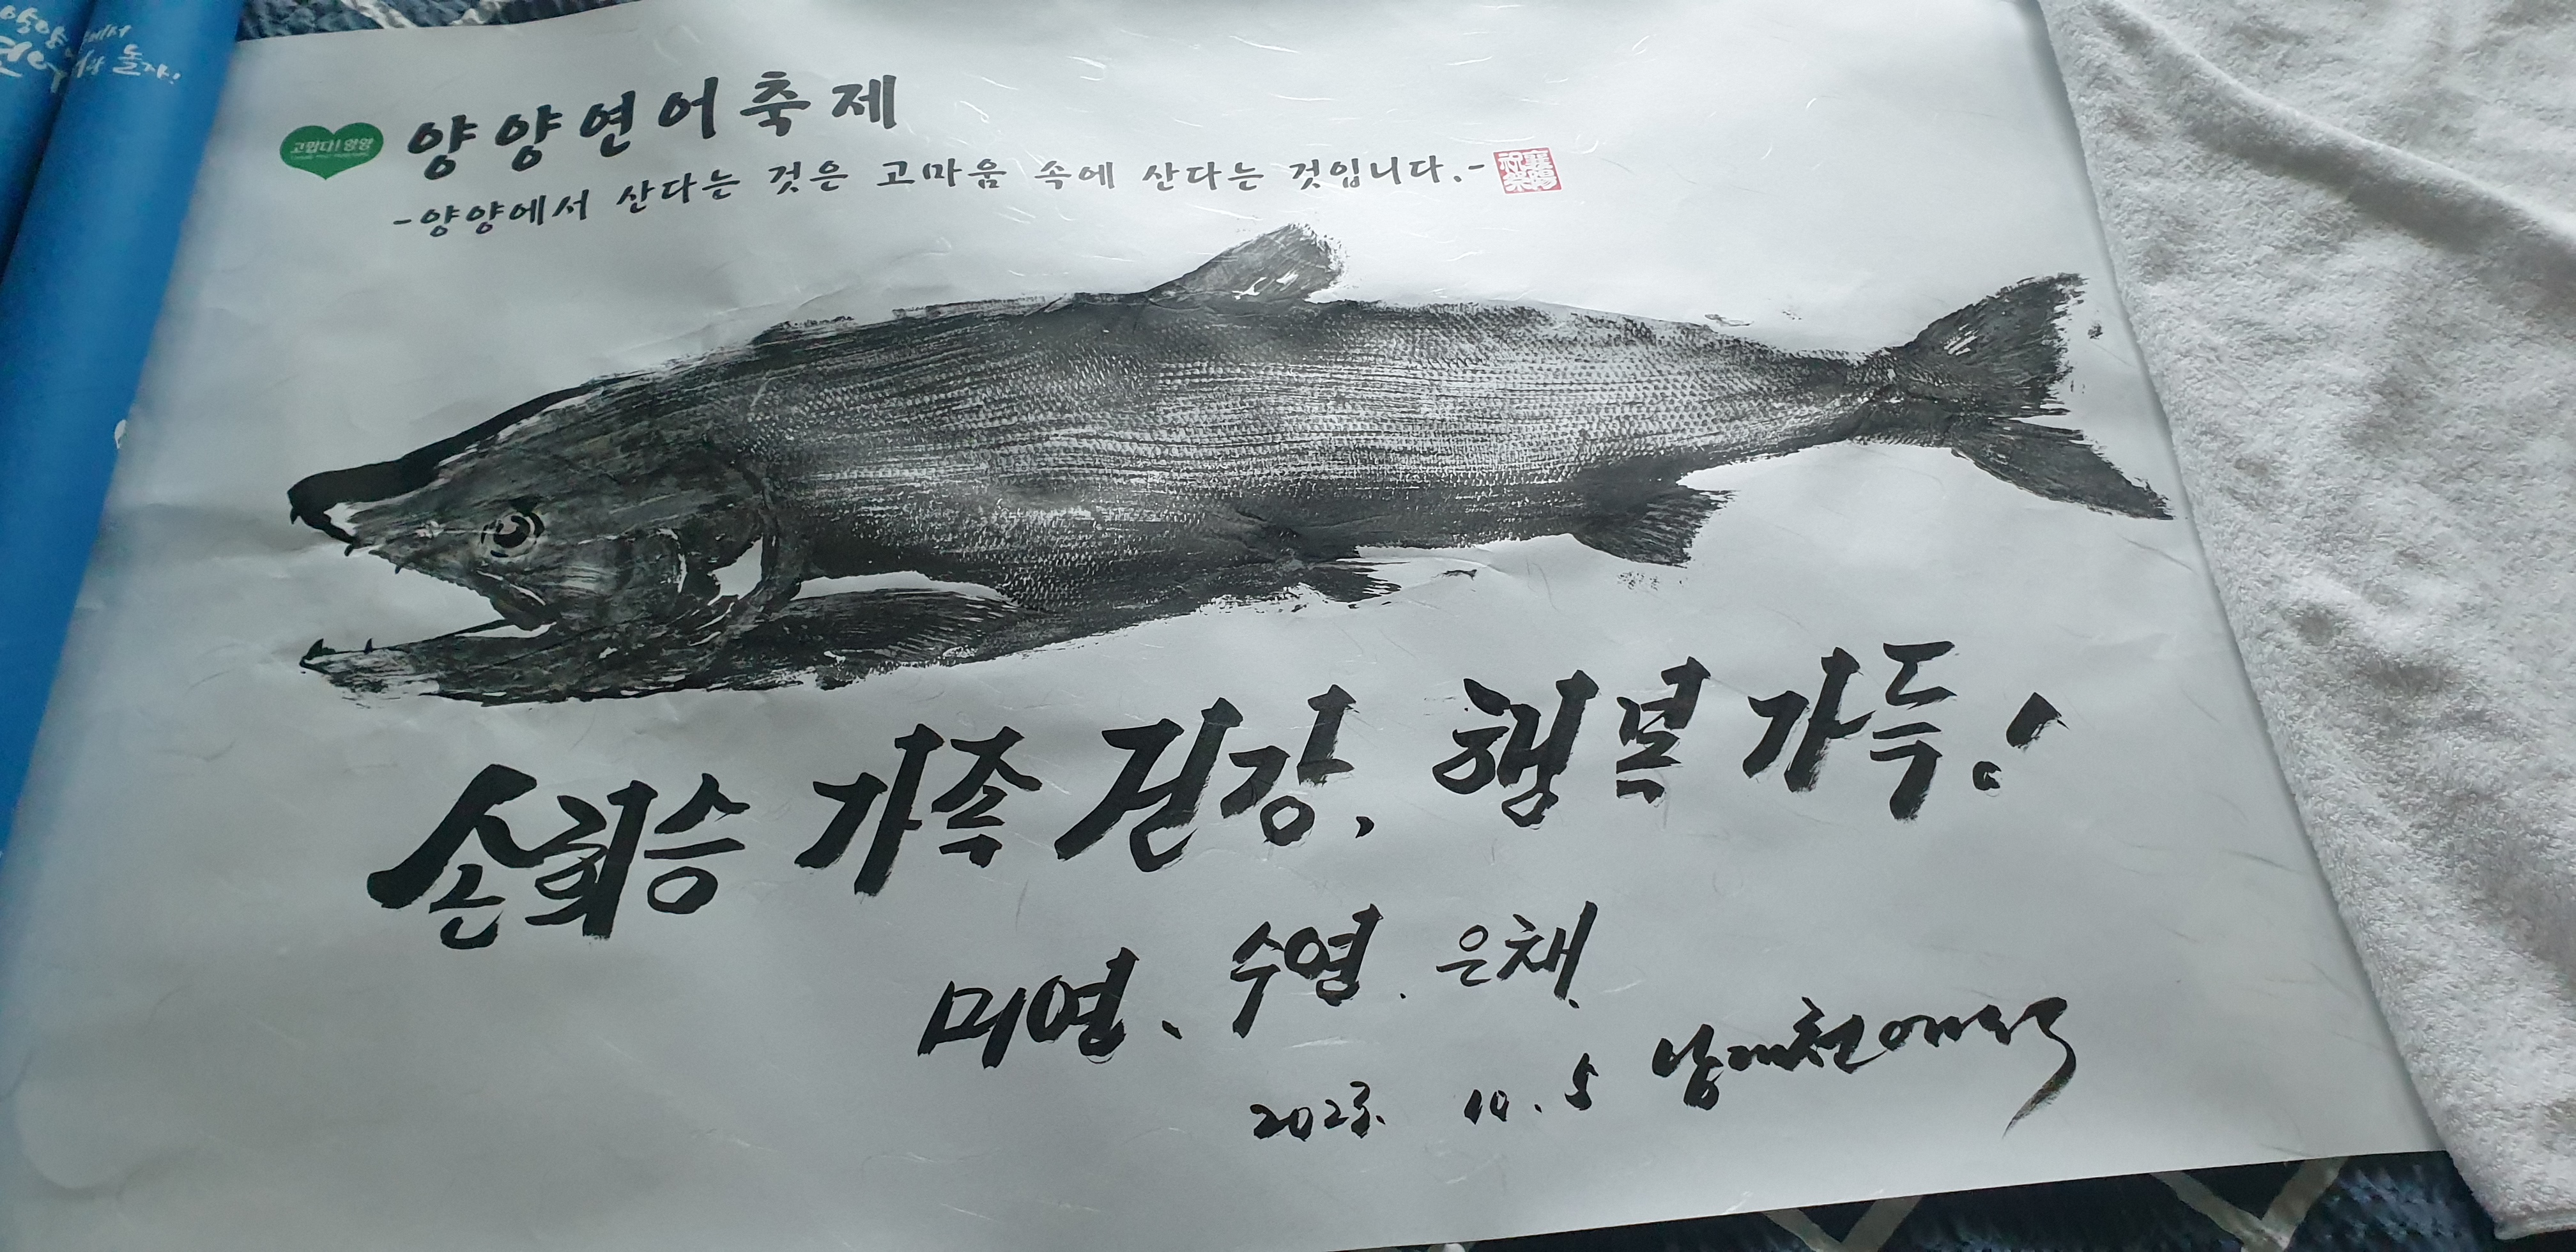 양양에서
연어랑 놀자!
고맙다! 양양
양양연어축제
-양양에서 산다는 것은 고마움 속에 산다는 것입니다.-
손희승 가족 건강, 행복 가득!
미영、 수영. 은채.
2023. 10. 5 남대천에서